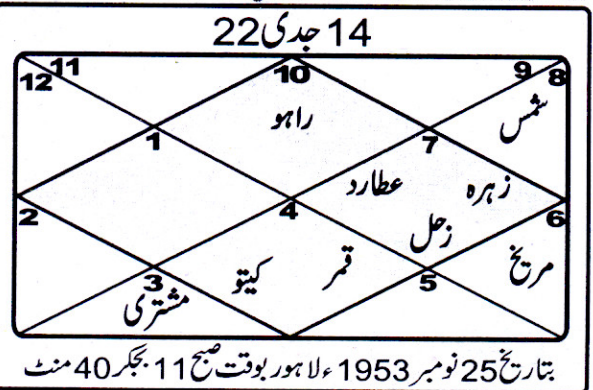 14 جدی 22
12 11 10 9 8
راہو
شمس
1 7
عطارد زہرہ
2 4 6
زحل
کیتو قمر مریخ
3 5
مشتری
بتاریخ 25 نومبر 1953ء لاہور بوقت صبح 11 بجکر 40 منٹ